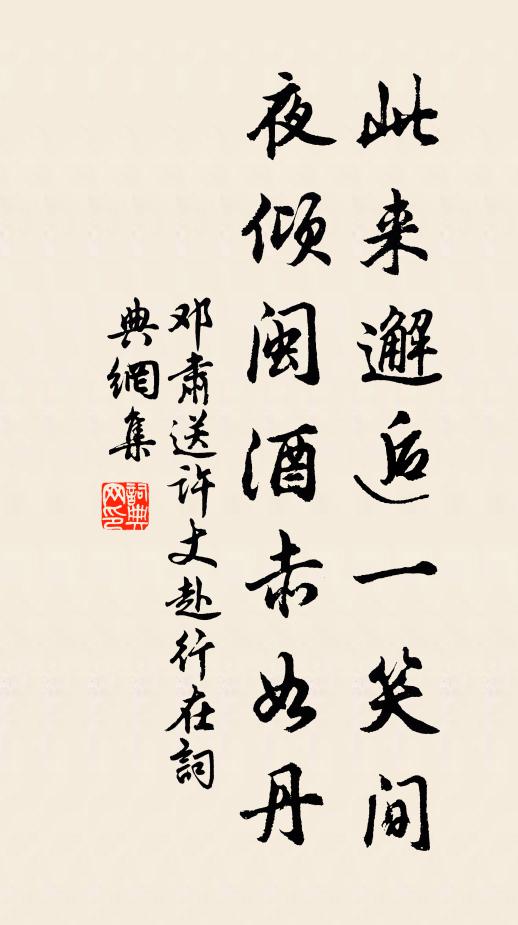 此来邂逅一笑间
夜倾闽酒赤如丹
邓肃送许丈赴行在詞
典網集
詞典网印